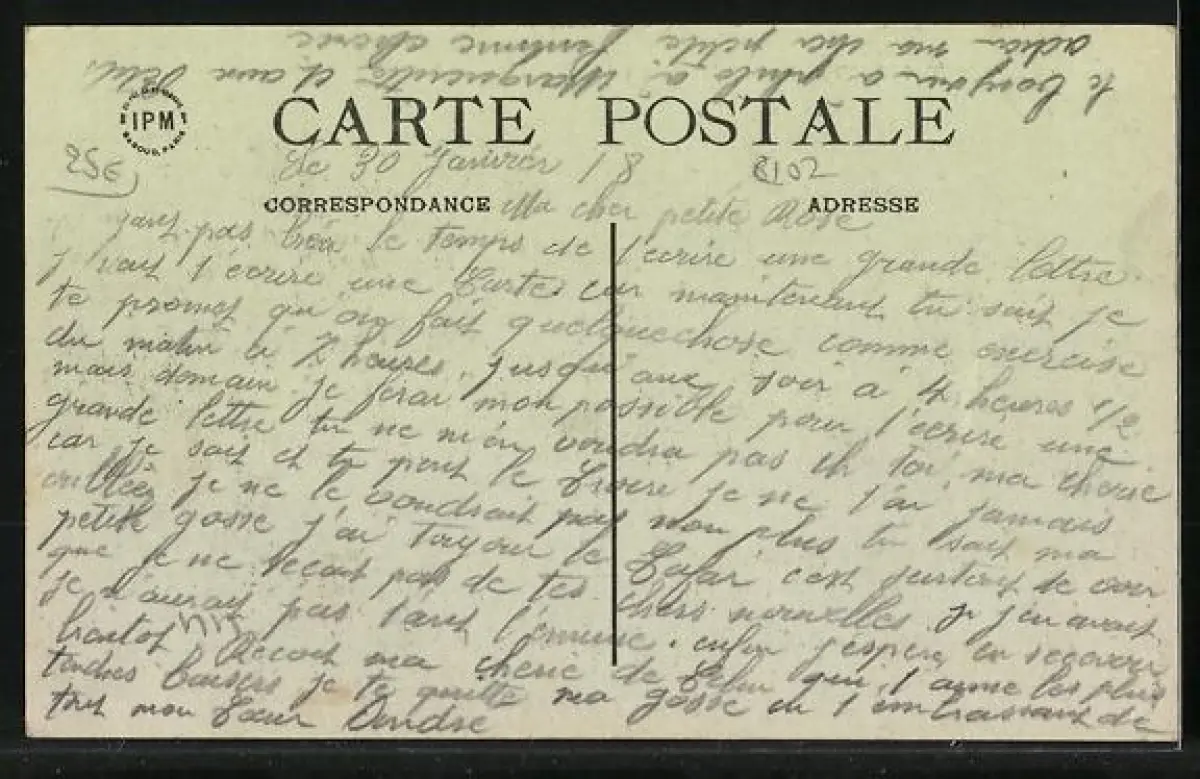 adieu ma cher petite femme cherie
le bonjour a Marguerite et aux
CARTE POSTALE
IPM
PARIS
25€
Le 30 Janvier 18
8102
CORRESPONDANCE
ADRESSE
Ma cher petite Rose
yant pas le temps de t'ecrire une grande lettre
J vait t ecrire une Carte car maintenant tu sait je
te promet qu on fait quelquechose comme exercise
du matin à 7 heures jusqu'aux soir à 4 heures 1/2
mais domain je ferai mon possible pour t'ecrire une
grande lettre tu ne m'en voudra pas eh toi, ma cherie
car je sait et tu peut le je ne t'ai jamais
oublièe je ne le voudrait pas non plus tu sait ma
petite gosse j'ai toujour le Cafar c'est surtout de voir
que je ne recoit pas de tes chers nouvelles. Si j'en avait
je n'aurait pas tant l'ennuie. enfin j'espere en recevoir
bientot Recoit ma cherie de Celui qui t aime les plus
tendres baisers je te quitte ma gosse en t embrassant de
tout mon Cœur Andre